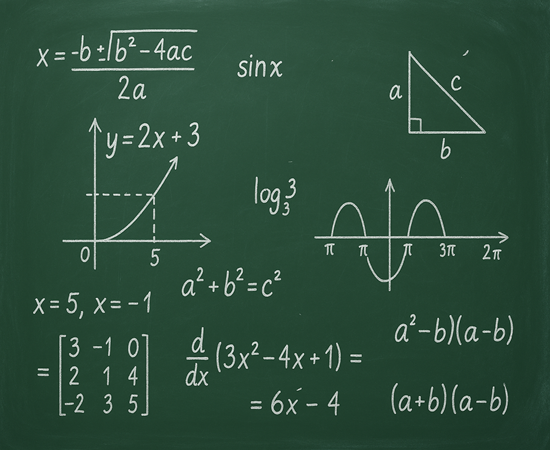 x = -b ± √b² - 4ac
2a
sin x
a
c
b
y = 2x + 3
0
5
log₃3
π
π
π
3π
2π
a² + b² = c²
x = 5, x = -1
= [3 -1 0
2 1 4
-2 3 5]
d/dx (3x² - 4x + 1) =
= 6x - 4
a² - b)(a - b)
(a + b)(a - b)